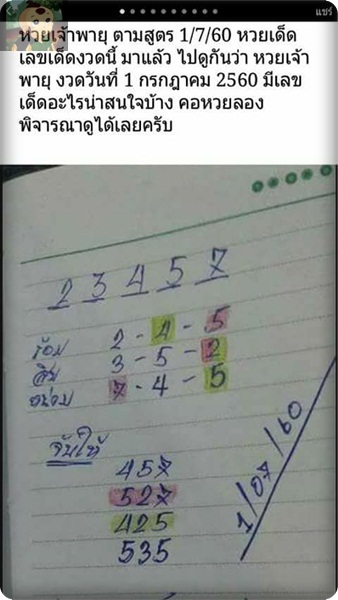 แชร์
หวยเจ้าพายุ ตามสูตร 1/7/60 หวยเด็ด
เลขเด็ดงวดนี้ มาแล้ว ไปดูกันว่า หวยเจ้า
พายุ งวดวันที่ 1 กรกฎาคม 2560 มีเลข
เด็ดอะไรน่าสนใจบ้าง คอหวยลอง
พิจารณาดูได้เลยครับ
2 3 4 5 7
ร้อย 2 - 4 - 5
สิบ 3 - 5 - 2
หน่วย 7 - 4 - 5
จับให้
457
527
425
535
1/07/60